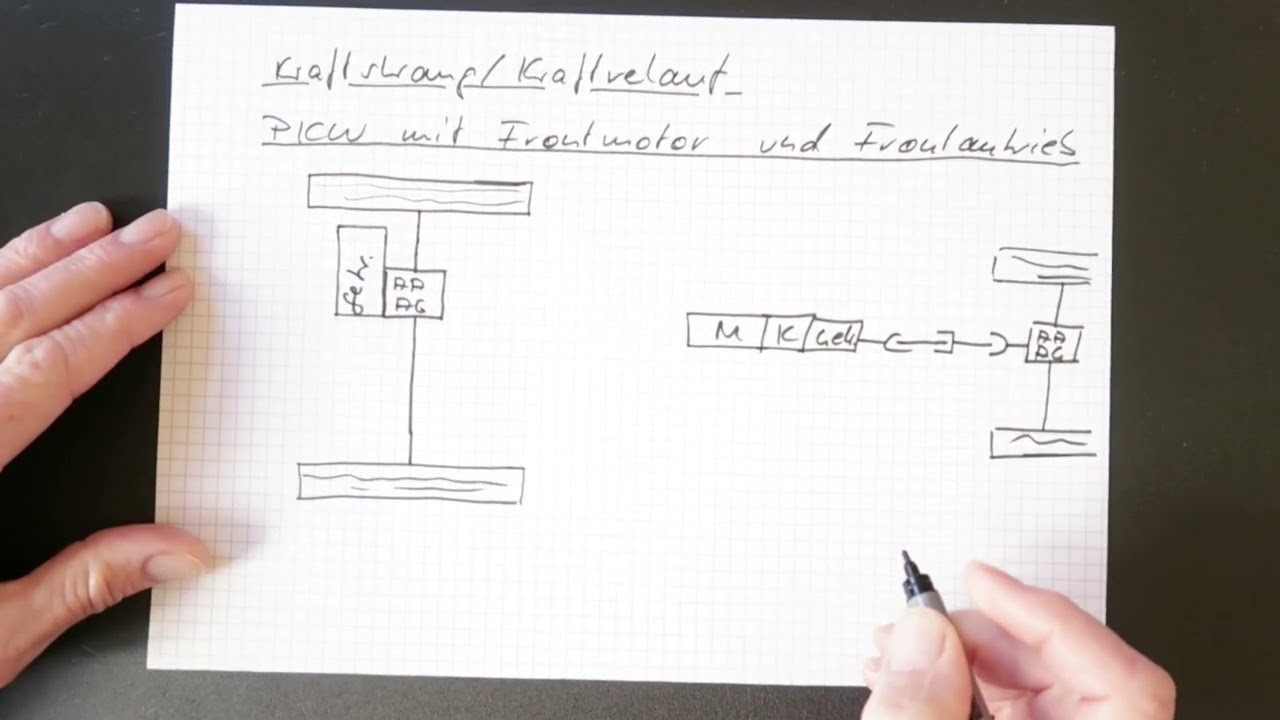 Kraftstrang/Kraftverlauf
PKW mit Frontmotor und Frontantrieb
Getr.
AA
AG
M K Getr
AA
AG